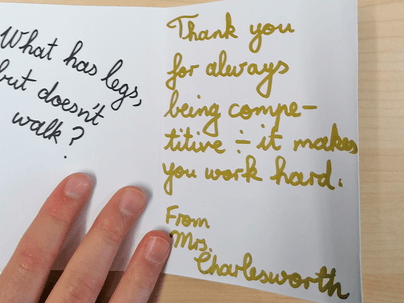 What has legs,
but doesn't
walk?
Thank you
for always
being compe-
titive ÷ it makes
you work hard.
From
Mrs.
Charlesworth